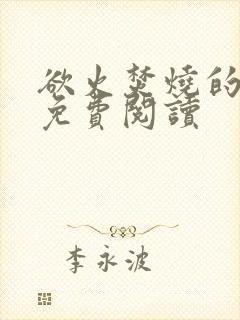 欲火焚燒的
免費閱讀
李永波